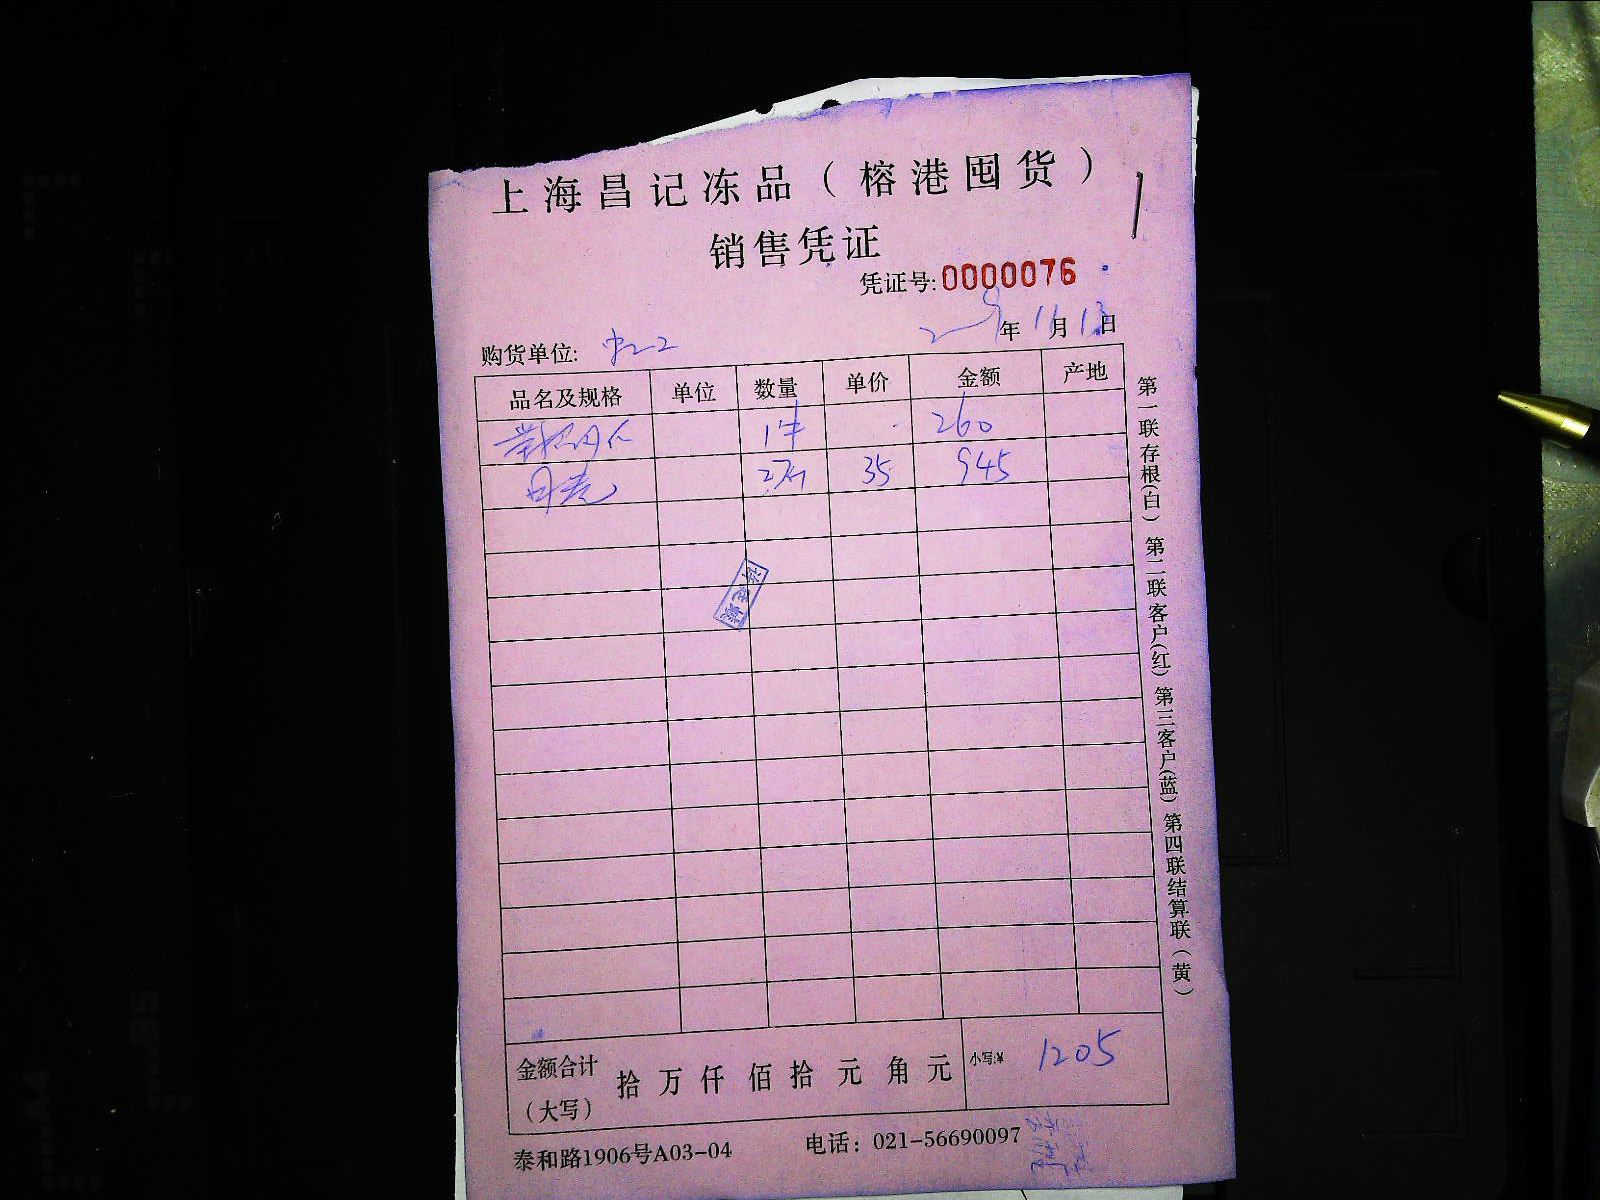 上海昌记冻品（榕港囤货）
销售凭证
凭证号:0000076
年 11月13日
购货单位:
品名及规格 单位 数量 单价 金额 产地
1件 260
27斤 35 945
金额合计（大写） 拾 万 仟 佰 拾 元 角 元 小写:¥ 1205
泰和路1906号A03-04 电话：021-56690097
第一联存根(白) 第二联客户(红) 第三客户(蓝) 第四联结算联(黄)